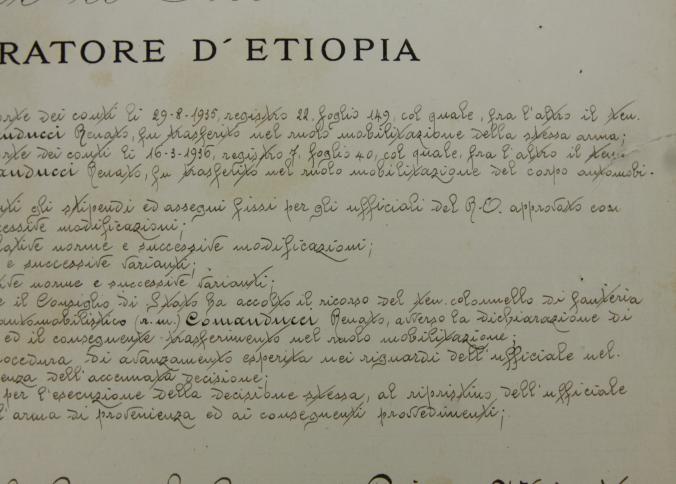 RATORE D'ETIOPIA
orte dei conti li 29-8-1935, registro 22, foglio 149, col quale, fra l'altro il ten.
anducci Renato, fu trasferito nel ruolo mobilitazione della stessa arma;
orte dei conti li 16-3-1936, registro 7, foglio 40, col quale, fra l'altro il ten.
anducci Renato, fu trasferito nel ruolo mobilitazione del corpo automobi-
nti gli stipendi ed assegni fissi per gli ufficiali del R.O. approvato con
cessive modificazioni;
lative norme e successive modificazioni;
e successive varianti;
tive norme e successive varianti;
e il Consiglio di Stato ha accolto il ricorso del ten. colonnello di fanteria
automobilistico (r.m.) Comanducci Renato, avverso la dichiarazione di
ed il conseguente trasferimento nel ruolo mobilitazione;
ocedura di avanzamento esperita nei riguardi dell'ufficiale nel-
enza dell'accennata decisione;
per l'esecuzione della decisione stessa, al ripristino dell'ufficiale
l'arma di provenienza ed ai conseguenti provvedimenti;